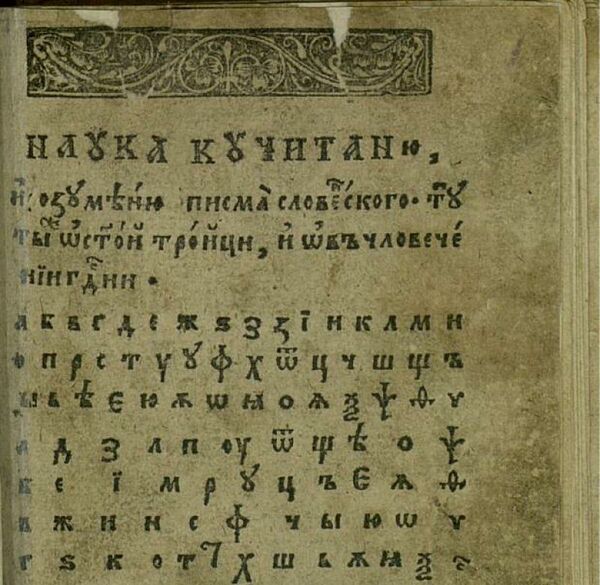 НАꙊКА КꙊЧИТАНЮ,
И҆ роꙁꙋмѣ́нїю писма̀ словеⷩ҇ского· тꙋ
тыⷤ ѡ҆ст҃о́й тро́йци, и҆ ѡ҆въчловече́
нїи гдⷭ҇ни ·
а б в г д е ж ѕ з ꙁ ї и к л м н
о п р с т у ꙋ ф х ѿ ц ч ш щ ъ
ы ь ѣ є ю ѫ ѡ ꙗ ѻ ѧ ѯ ѱ ѳ ѵ
а д з л п оу ѿ щ ѣ о ѱ
б е ї м р ꙋ ц ъ Є ѧ ѳ
в ж и н с ф ч ы ю ѡ ѵ
г ѕ к о т х ш ь ѫ ꙗ ѯ